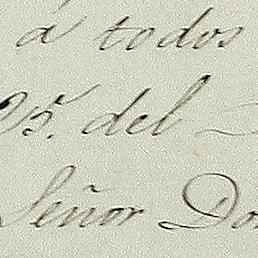 á todos
25. del
Señor Don